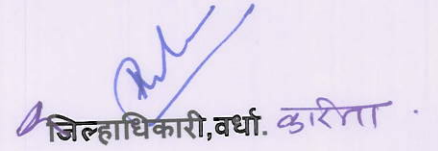 जिल्हाधिकारी,वर्धा. करीता .